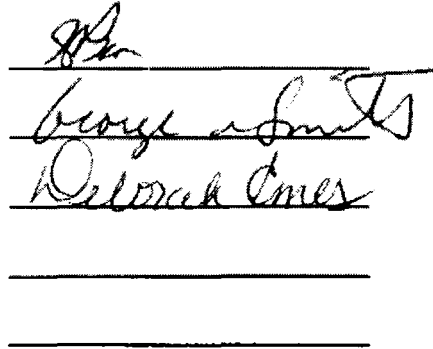 George A Smith
Deborah Emes